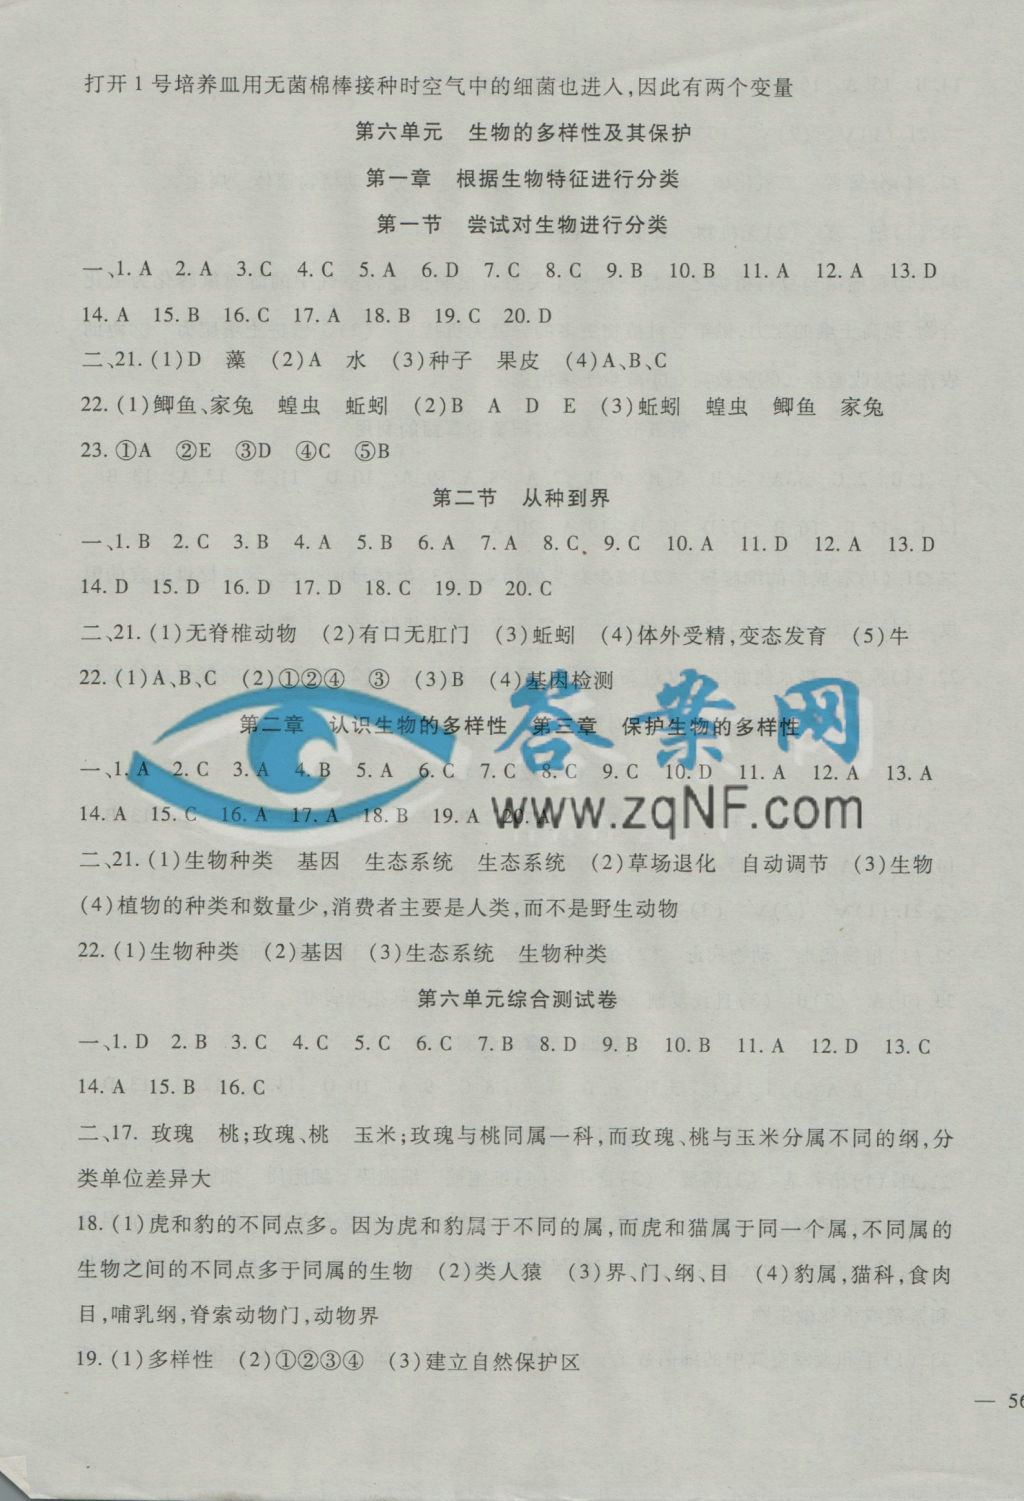 打开1号培养皿用无菌棉棒接种时空气中的细菌也进人,因此有两个变量
第六单元 生物的多样性及其保护
第一章 根据生物特征进行分类
第一节 尝试对生物进行分类
一、1. A 2. A 3. C 4. C 5. A 6. D 7. C 8. C 9. B 10. B 11. A 12. A 13. D
14. A 15. B 16. C 17. A 18. B 19. C 20. D
二、21. (1)D 藻 (2)A 水 (3)种子 果皮 (4)A、B、C
22. (1)鲫鱼、家兔 蝗虫 蚯蚓 (2)B A D E (3)蚯蚓 蝗虫 鲫鱼 家兔
23. ①A ②E ③D ④C ⑤B
第二节 从种到界
一、1. B 2. C 3. B 4. A 5. B 6. A 7. A 8. C 9. C 10. A 11. D 12. A 13. D
14. D 15. D 16. D 17. D 18. C 19. D 20. C
二、21. (1)无脊椎动物 (2)有口无肛门 (3)蚯蚓 (4)体外受精,变态发育 (5)牛
22. (1)A、B、C (2)①②④ ③ (3)B (4)基因检测
第二章 认识生物的多样性 第三章 保护生物的多样性
一、1. A 2. C 3. A 4. B 5. A 6. C 7. C 8. C 9. C 10. D 11. A 12. A 13. A
14. A 15. C 16. A 17. A 18. B 19. A 20. A
二、21. (1)生物种类 基因 生态系统 生态系统 (2)草场退化 自动调节 (3)生物
(4)植物的种类和数量少,消费者主要是人类,而不是野生动物
22. (1)生物种类 (2)基因 (3)生态系统 生物种类
第六单元综合测试卷
一、1. D 2. B 3. C 4. C 5. C 6. C 7. B 8. D 9. B 10. B 11. A 12. D 13. C
14. A 15. B 16. C
二、17. 玫瑰 桃;玫瑰、桃 玉米;玫瑰与桃同属一科,而玫瑰、桃与玉米分属不同的纲,分
类单位差异大
18. (1)虎和豹的不同点多。因为虎和豹属于不同的属,而虎和猫属于同一个属,不同属的
生物之间的不同点多于同属的生物 (2)类人猿 (3)界、门、纲、目 (4)豹属,猫科,食肉
目,哺乳纲,脊索动物门,动物界
19. (1)多样性 (2)①②③④ (3)建立自然保护区
— 56
答案网
www.zqNF.com